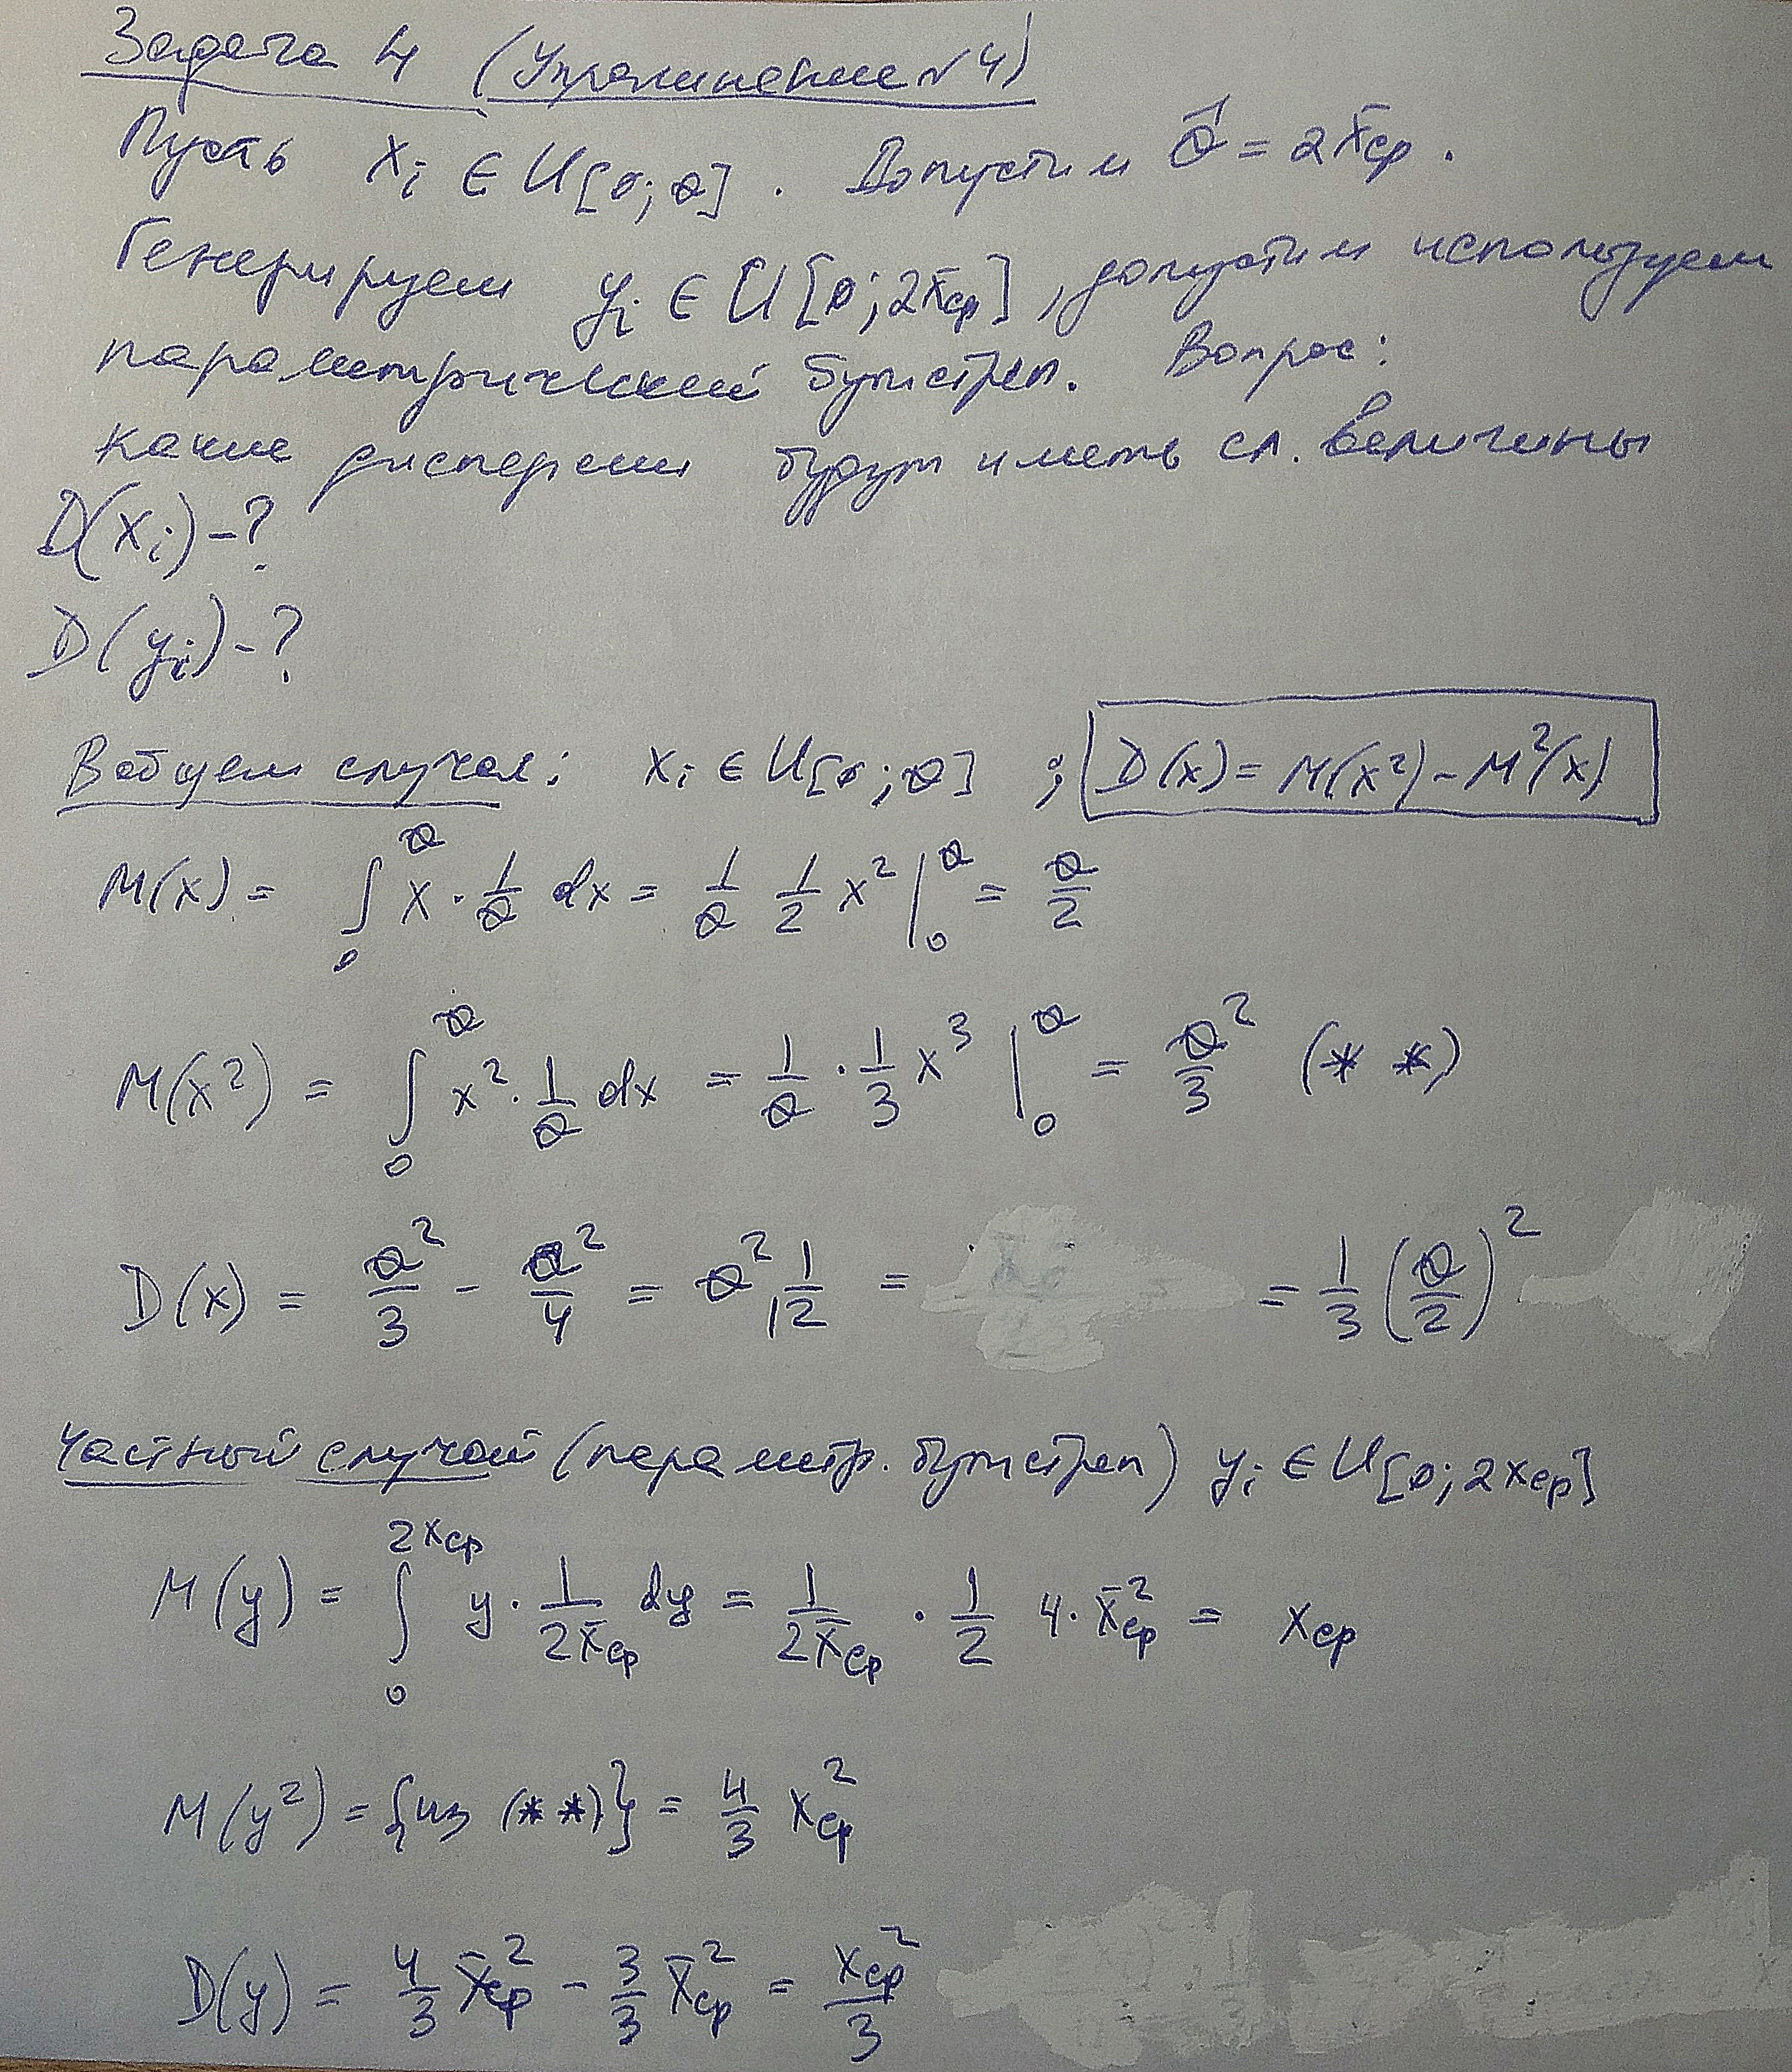 Задача 4 (Упражнение №4)
Пусть xᵢ ∈ U[0;θ]. Допустим θ̂ = 2x̄ср.
Генерируем yᵢ ∈ U[0;2x̄ср], допустим используем
параметрический бутстреп. Вопрос:
какие дисперсии будут иметь сл. величины
D(xᵢ)-?
D(yᵢ)-?
В общем случае: xᵢ ∈ U[0;θ] ; D(x) = M(x²) - M²(x)
M(x) = ∫₀^θ x · 1/θ dx = 1/θ 1/2 x² |₀^θ = θ/2
M(x²) = ∫₀^θ x² · 1/θ dx = 1/θ · 1/3 x³ |₀^θ = θ²/3 (* *)
D(x) = θ²/3 - θ²/4 = θ² 1/12 = = 1/3 (θ/2)²
Частный случай (параметр. бутстреп) yᵢ ∈ U[0;2xср]
M(y) = ∫₀^2xср y · 1/2x̄ср dy = 1/2x̄ср · 1/2 4 · x̄²ср = xср
M(y²) = {из (* *)} = 4/3 x²ср
D(y) = 4/3 x̄²ср - 3/3 x̄²ср = xср²/3